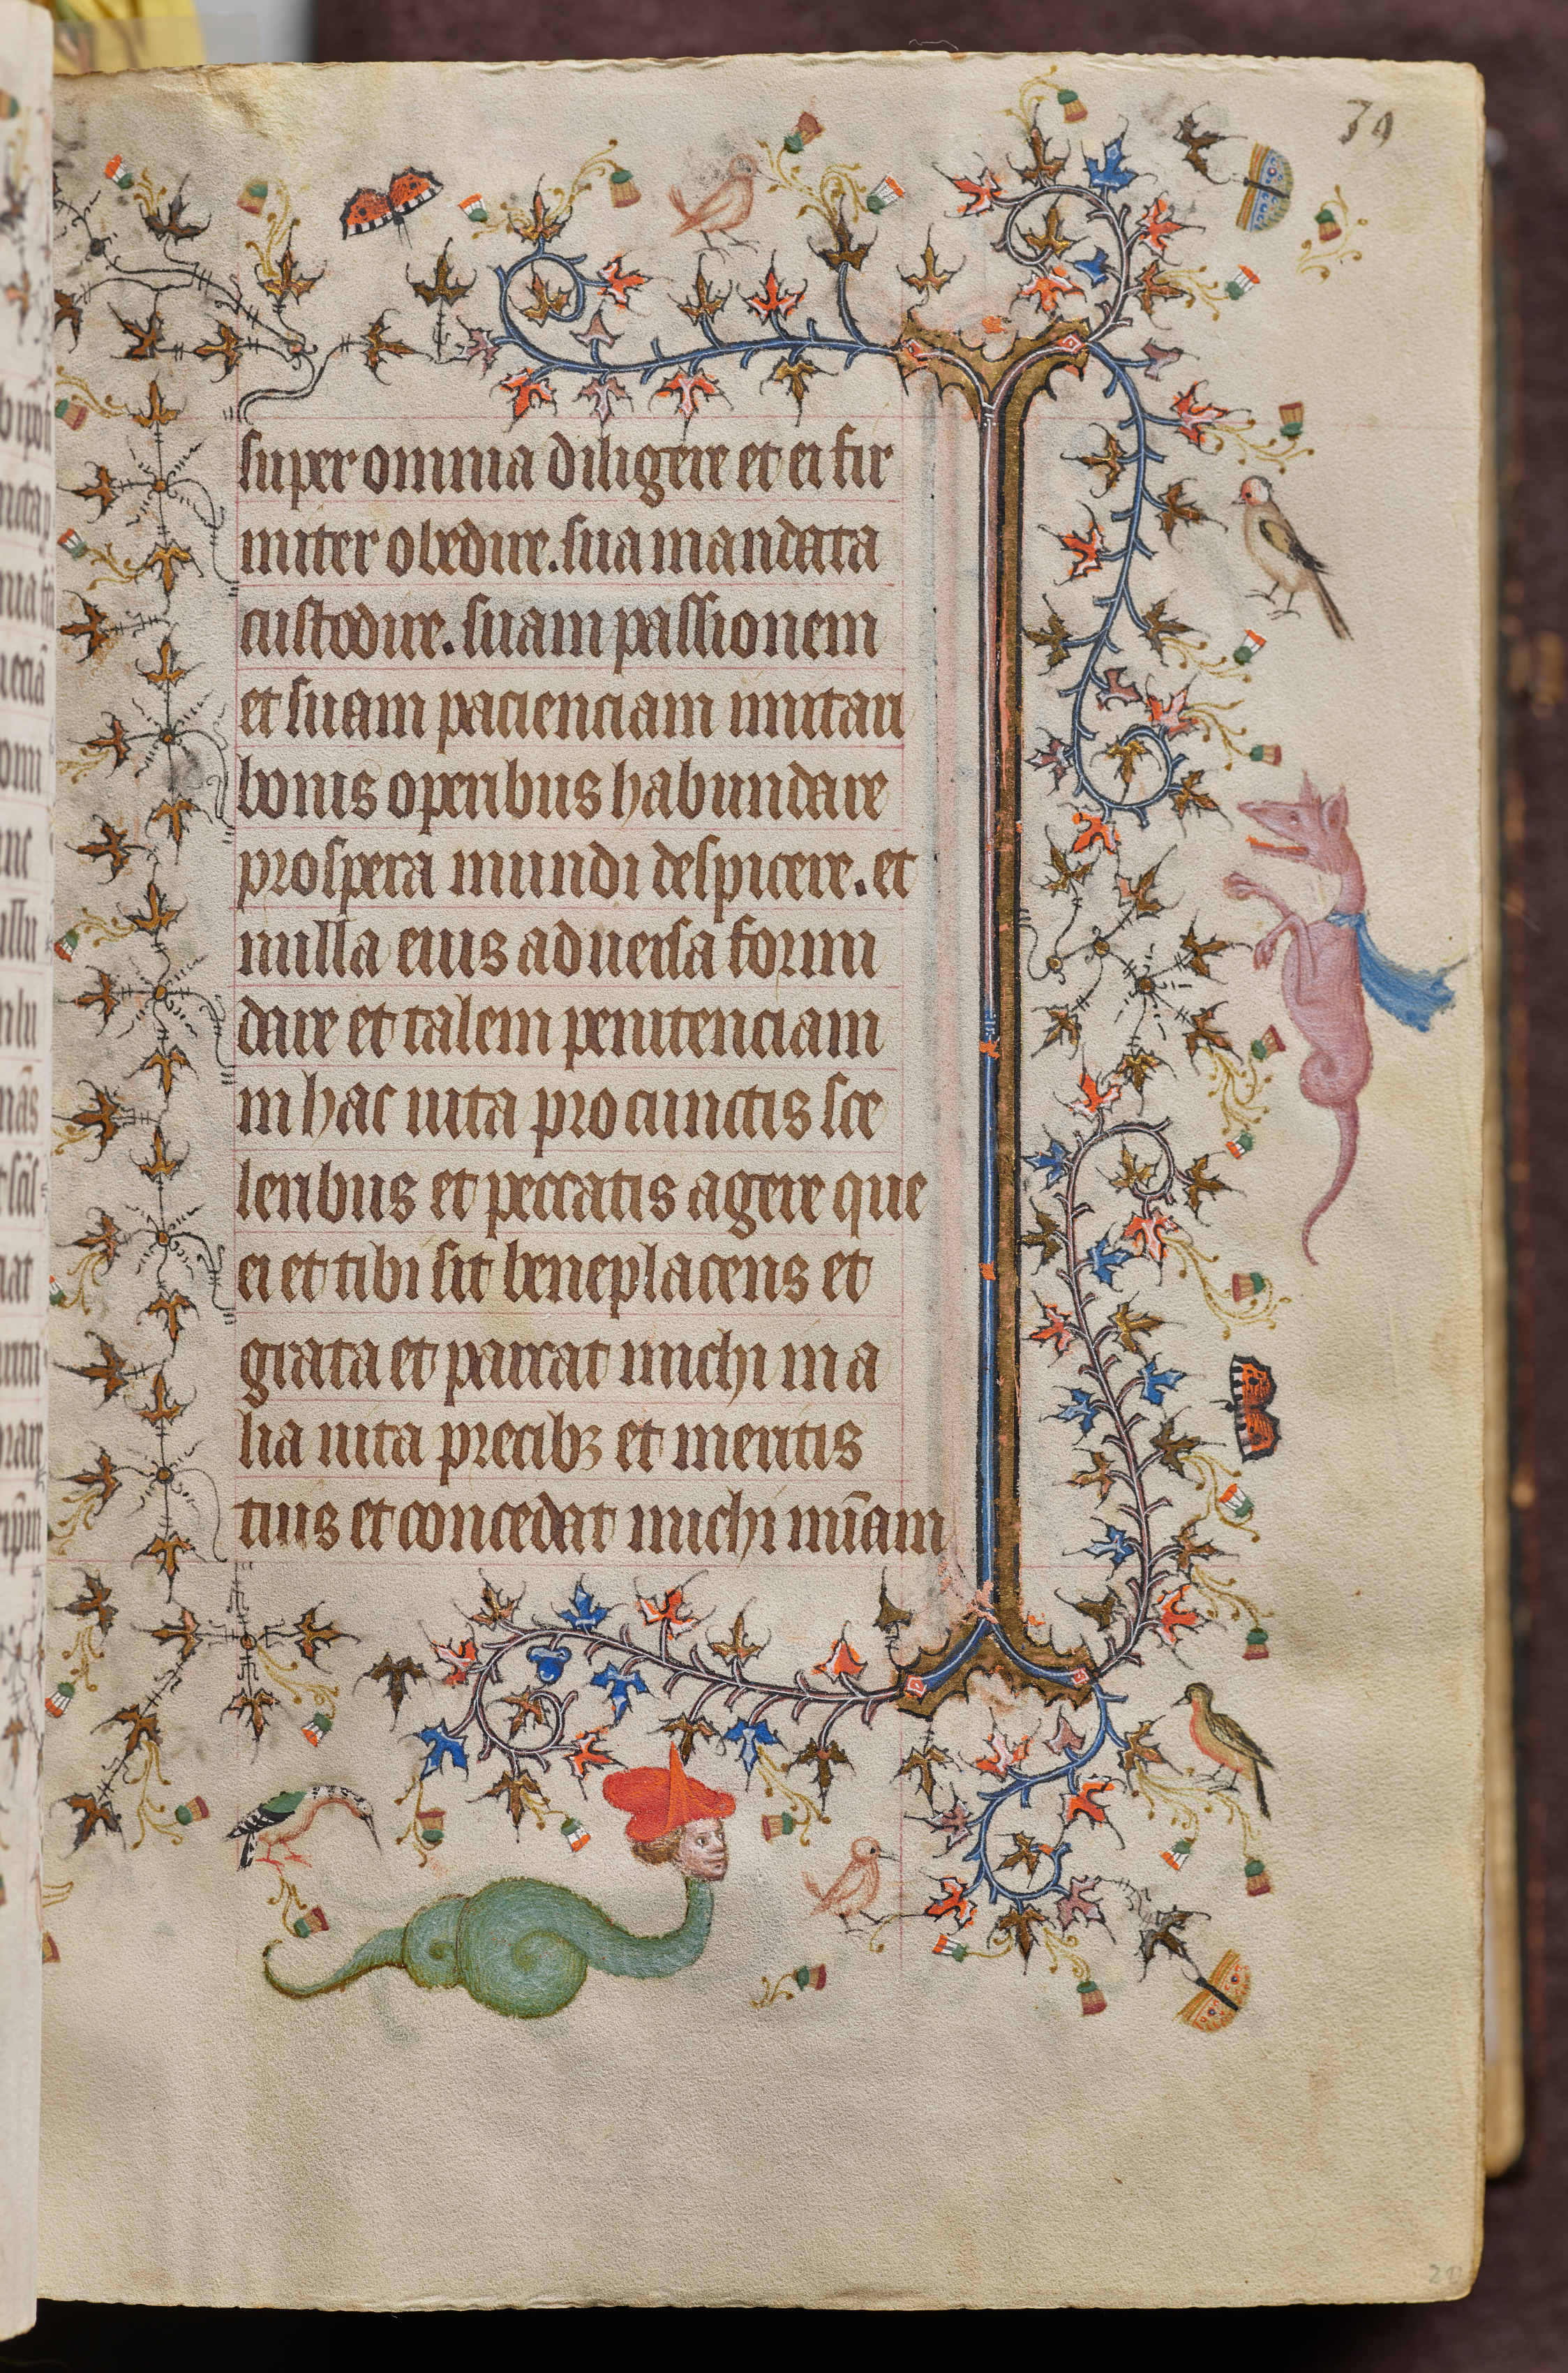 70
super omnia diligere et ei fir
miter obedire. sua mandata
custodire. suam passionem
et suam pacienciam imitari
bonis operibus habundare
prospera mundi despicere. et
nulla eius aduersa formi
dare et talem penitenciam
in hac uita pro cunctis sce
leribus et peccatis agere que
ei et tibi sit beneplacens et
grata et parcat michi in a
lia uita precibꝫ et meritis
tuis et concedat michi mīam